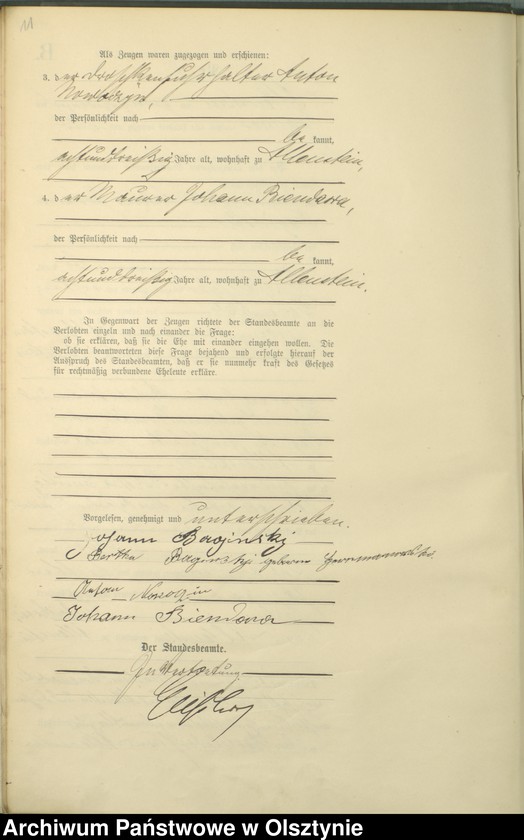 11
Als Zeugen waren zugezogen und erschienen:
3. der Droschkenfuhrhalter Anton
der Persönlichkeit nach
be kannt,
achtunddreißig Jahre alt, wohnhaft zu Allenstein,
4. der Maurer Johann Biendara,
der Persönlichkeit nach
be kannt,
achtunddreißig Jahre alt, wohnhaft zu Allenstein.
In Gegenwart der Zeugen richtete der Standesbeamte an die
Verlobten einzeln und nach einander die Frage:
ob sie erklären, daß sie die Ehe mit einander eingehen wollen. Die
Verlobten beantworteten diese Frage bejahend und erfolgte hierauf der
Ausspruch des Standesbeamten, daß er sie nunmehr kraft des Gesetzes
für rechtmäßig verbundene Eheleute erkläre.
Vorgelesen, genehmigt und unterschrieben.
Johann Baginski
Bertha Baginski geborene
Anton
Johann Biendara
Der Standesbeamte.
In Vertretung
Archiwum Państwowe w Olsztynie